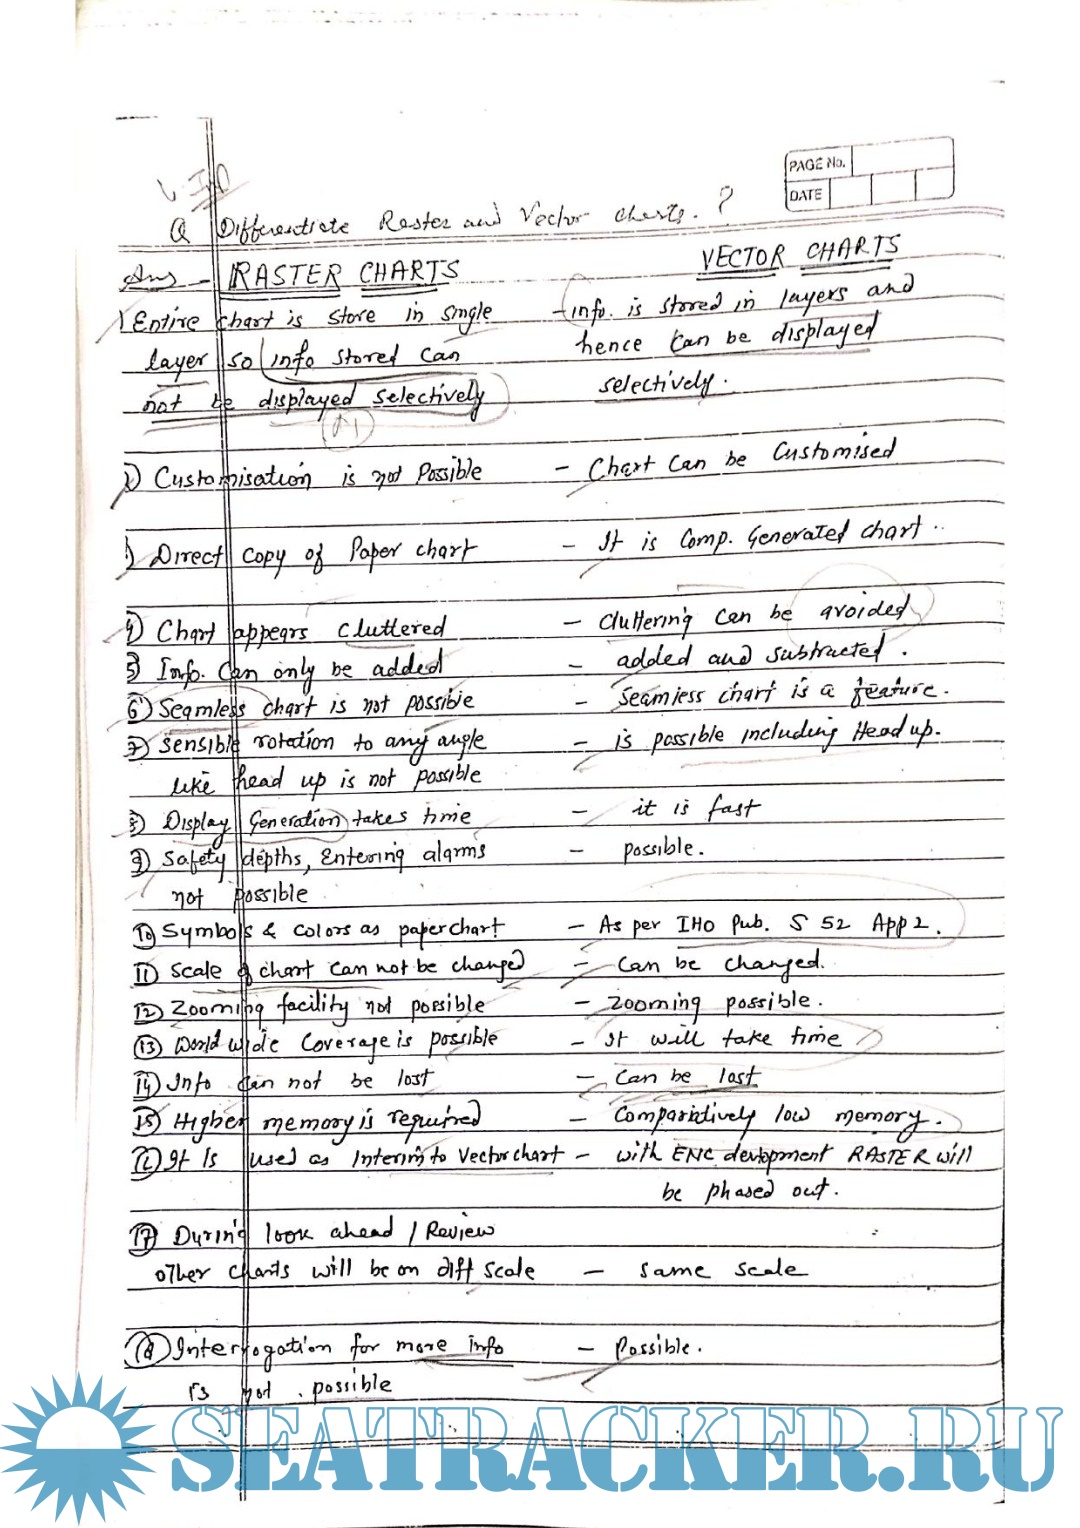 PAGE No.
DATE
Q Differentiate Raster and Vector charts. ?
Ans - RASTER CHARTS VECTOR CHARTS
1) Entire chart is store in single - info. is stored in layers and
layer so info stored can hence can be displayed
not be displayed selectively selectively.
2) Customisation is not possible - Chart can be customised
3) Direct copy of Paper chart - It is Comp. Generated chart.
4) Chart appears cluttered - cluttering can be avoided
5) Info. Can only be added - added and subtracted.
6) Seamless chart is not possible - Seamless chart is a feature.
7) Sensible rotation to any angle - is possible including Head up.
like head up is not possible
8) Display Generation takes time - it is fast
9) Safety depths, Entering alarms - possible.
not possible
10) Symbols & colors as paperchart - As per IHO Pub. S 52 App 2.
11) Scale of chart can not be changed - can be changed.
12) Zooming facility not possible - zooming possible.
13) World wide Coverage is possible - It will take time
14) Info can not be lost - can be lost
15) Higher memory is required - Comparitively low memory.
16) It Is used as Interim to Vector chart - with ENC devlopment RASTER will
be phased out.
17) During look ahead / Review
other charts will be on diff scale - same scale
18) Interrogation for more info - Possible.
is not possible
SEATRACKER.RU